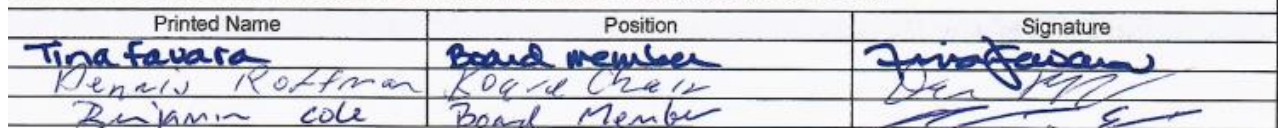 Printed Name Position Signature
Tina Favara Board member Tina Favara
Dennis Roffman Board Chair
Benjamin Cole Board Member